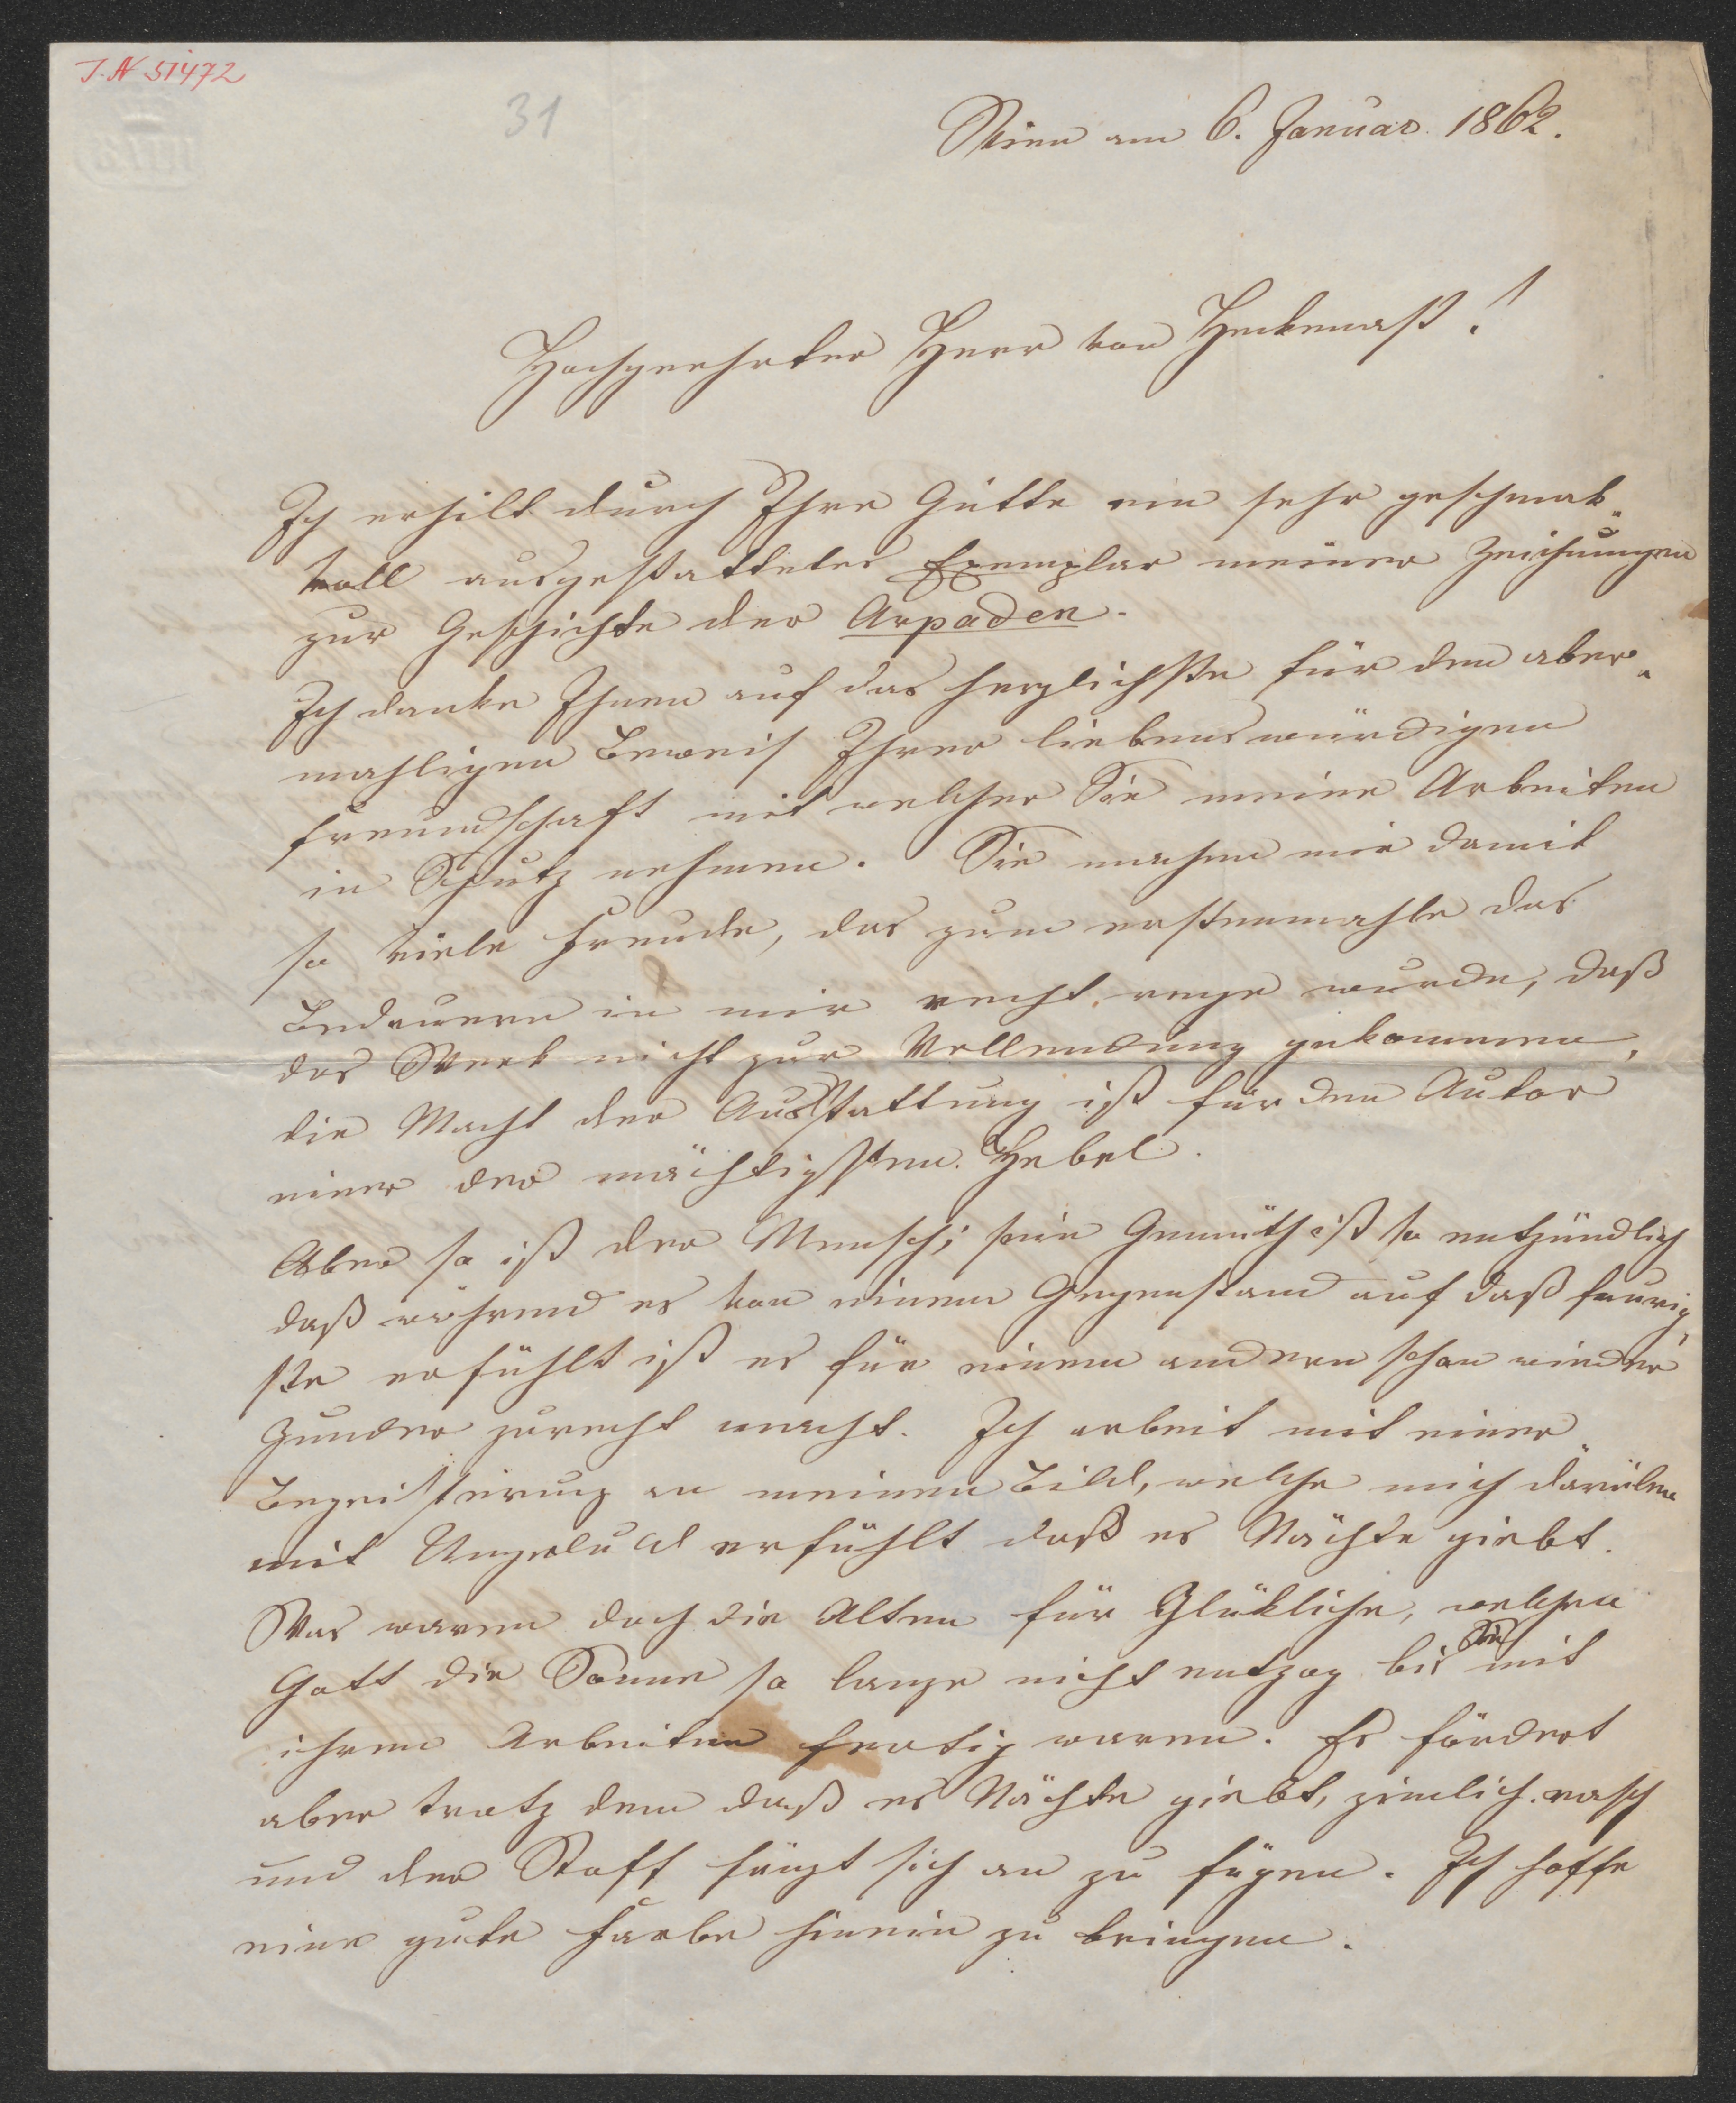 J. N 51472
31
Wien am 6. Januar 1862.
Hochgeehrter Herr von Heckenast!
Ich erhilt durch Ihre Gütte ein sehr geschmak„
voll ausgestattetes Exemplar meiner Zeichnungen
zur Geschichte der Arpaden.
Ich danke Ihnen auf das herzlichste für den aber„
mahligen Beweis Ihrer liebenswürdigen
Freundschaft mit welcher Sie meine Arbeiten
in Schutz nehmen. Sie machen mir damit
so viele Freude, das zum erstenmahle das
Bedauern in mir recht rege wurde, daß
das Werk nicht zur Vollendung gekommen,
die Macht der Ausstattung ist für den Autor
einer der mächtigsten Hebel.
Aber so ist der Mensch; sein Gemüth ist so entzündlich
daß während es von einem Gegenstand auf daß feurig„
ste erfühlt ist es für einen andern schon wieder
Zunder zurecht macht. Ich arbeit mit einer
Begeisterung an meinem Bild, welche mich darüber
mit Ungeduld erfühlt daß es Nächte giebt.
Was waren doch die Alten für Glükliche, welchen
Gott die Sonne so lange nicht entzog bis sie mit
ihren Arbeiten fertig waren. Es fördert
aber trotz dem daß es Nächte giebt, zimlich rasch
und der Stoff fängt sich an zu fügen. Ich hoffe
eine gute Farbe hinein zu bringen.